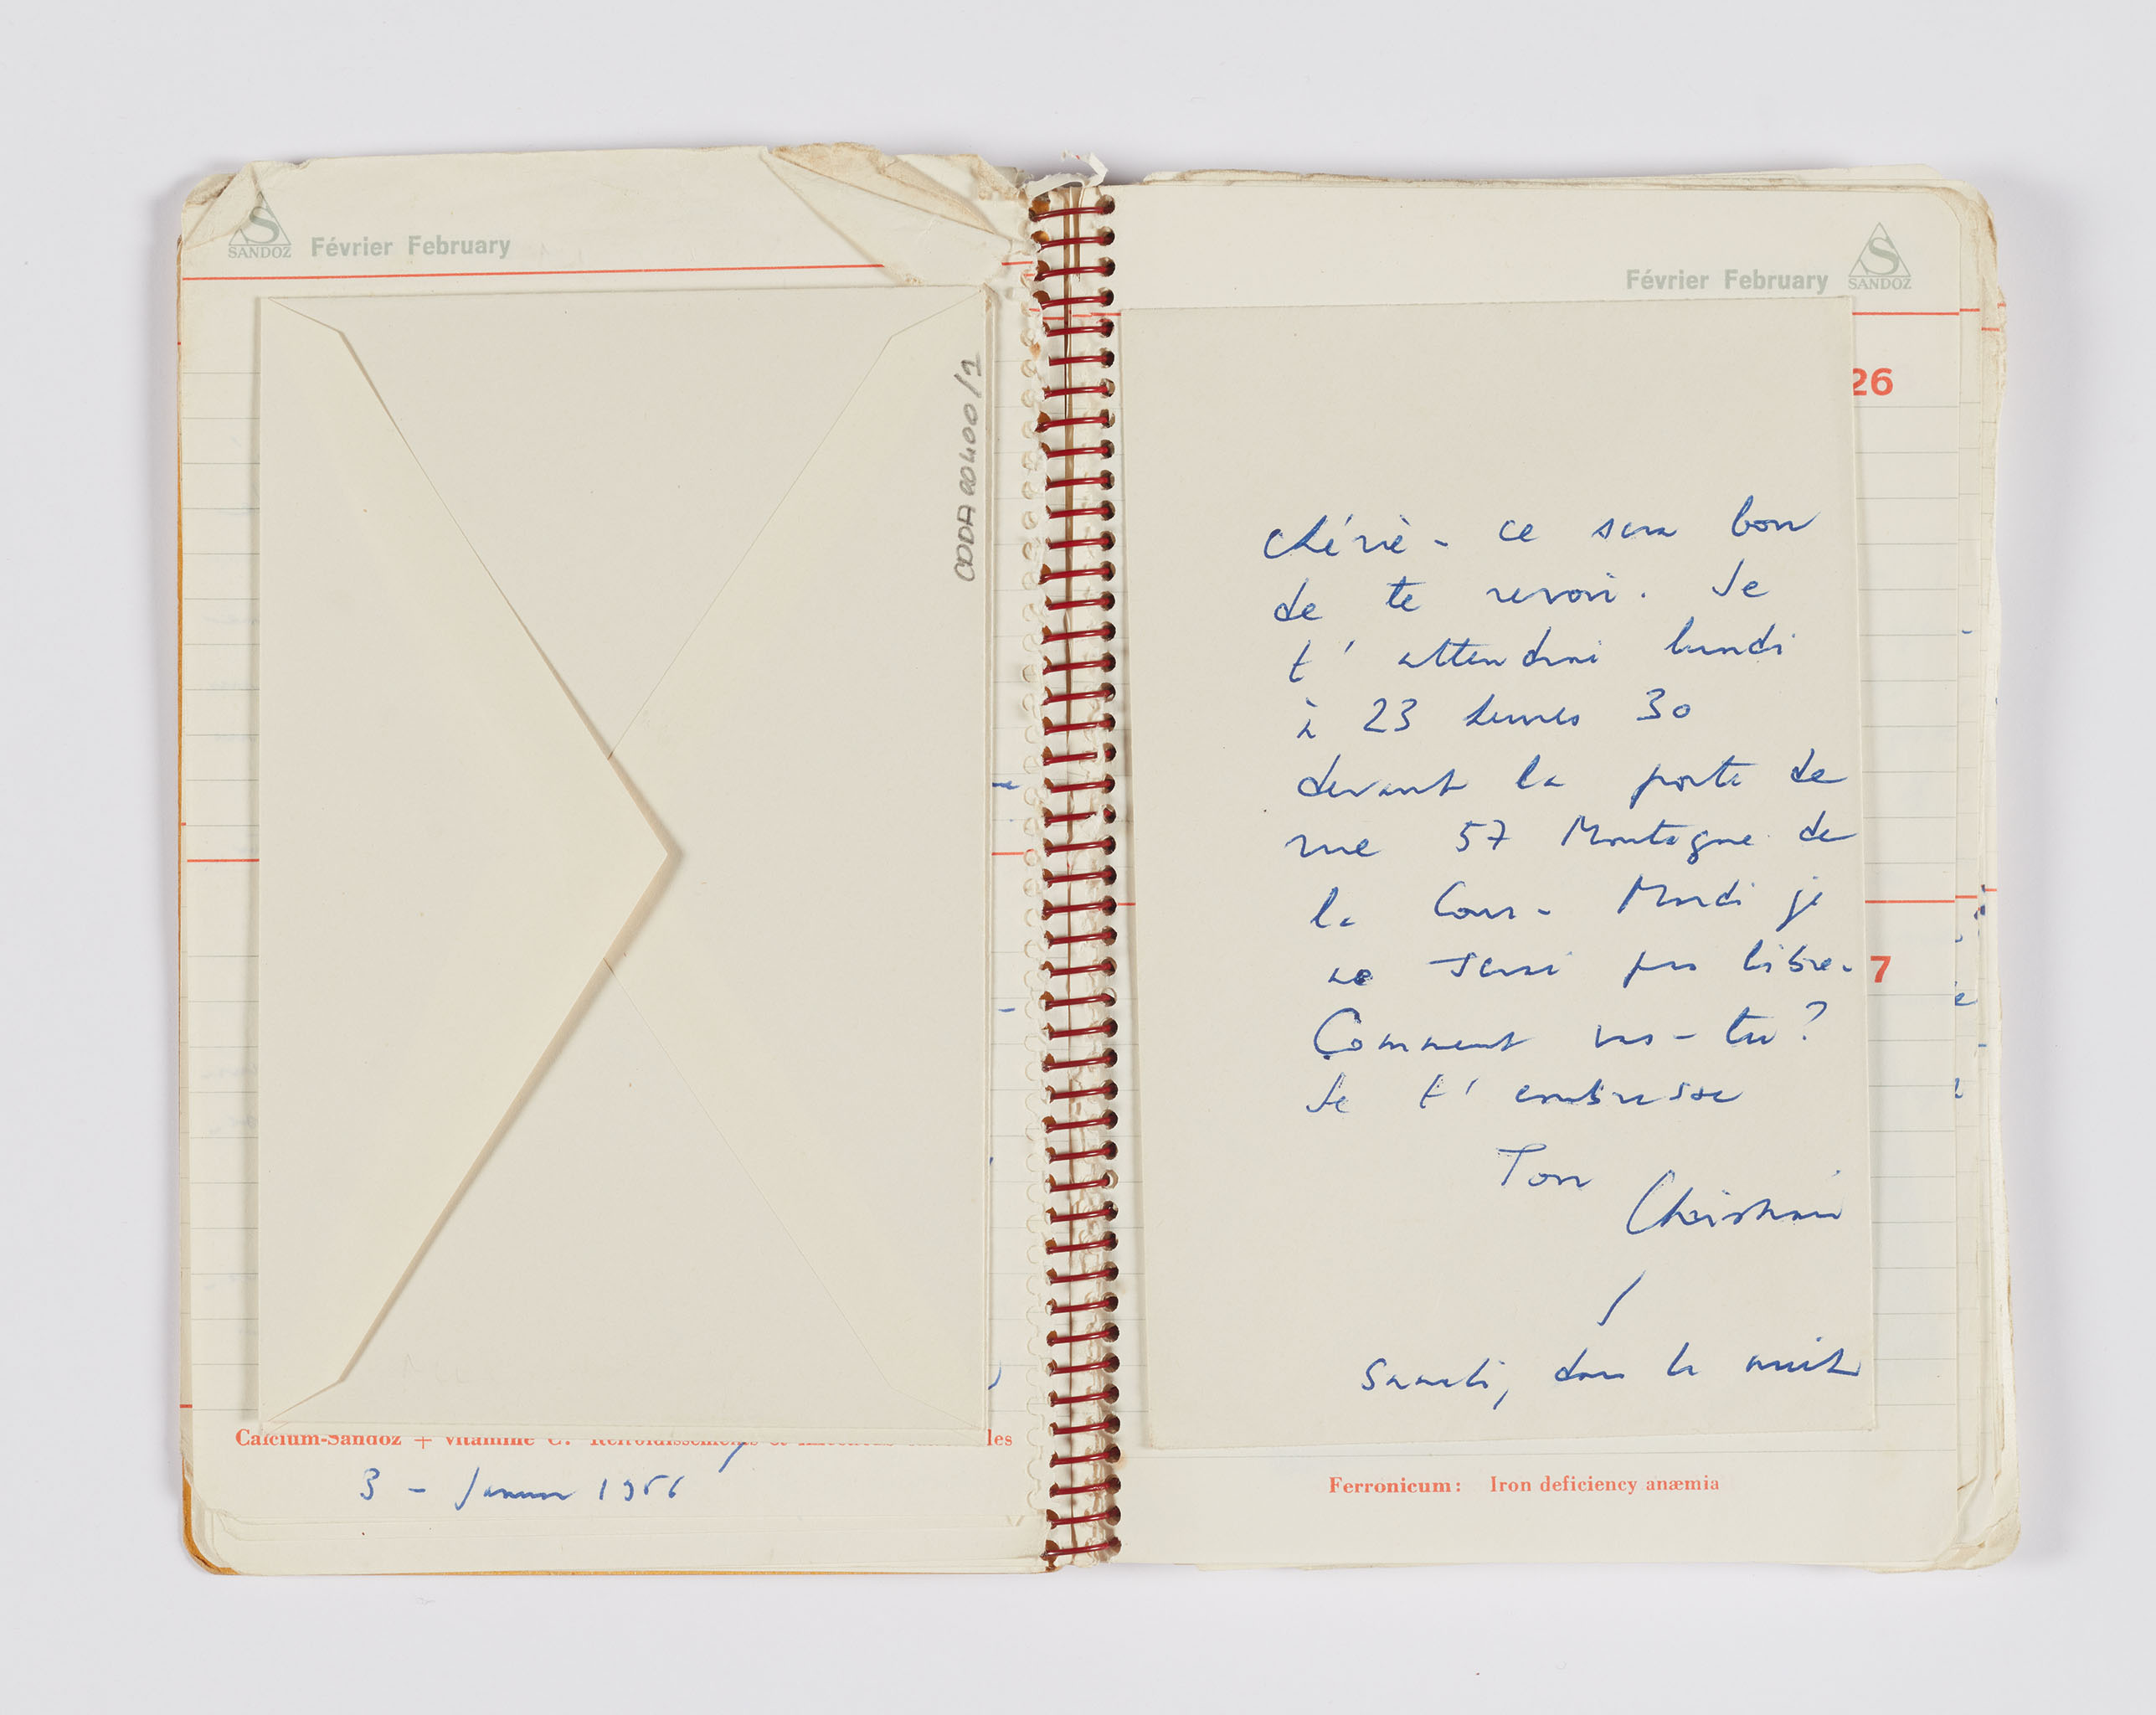 SANDOZ Février February
CDDA 00400/1
Calcium-Sandoz + Vitamine C: Refroidissements et
les
3 - Janvier 1956
Février February SANDOZ
26
chérie - ce sera bon
de te revoir. Je
t'attendrai lundi
à 23 heures 30
devant la porte de
rue 57 Montagne de
la Cour - Mardi je
ne serai pas libre -
Comment vas-tu?
Je t'embrasse
Ton
Christian
Samedi, dans la nuit
7
Ferronicum: Iron deficiency anæmia